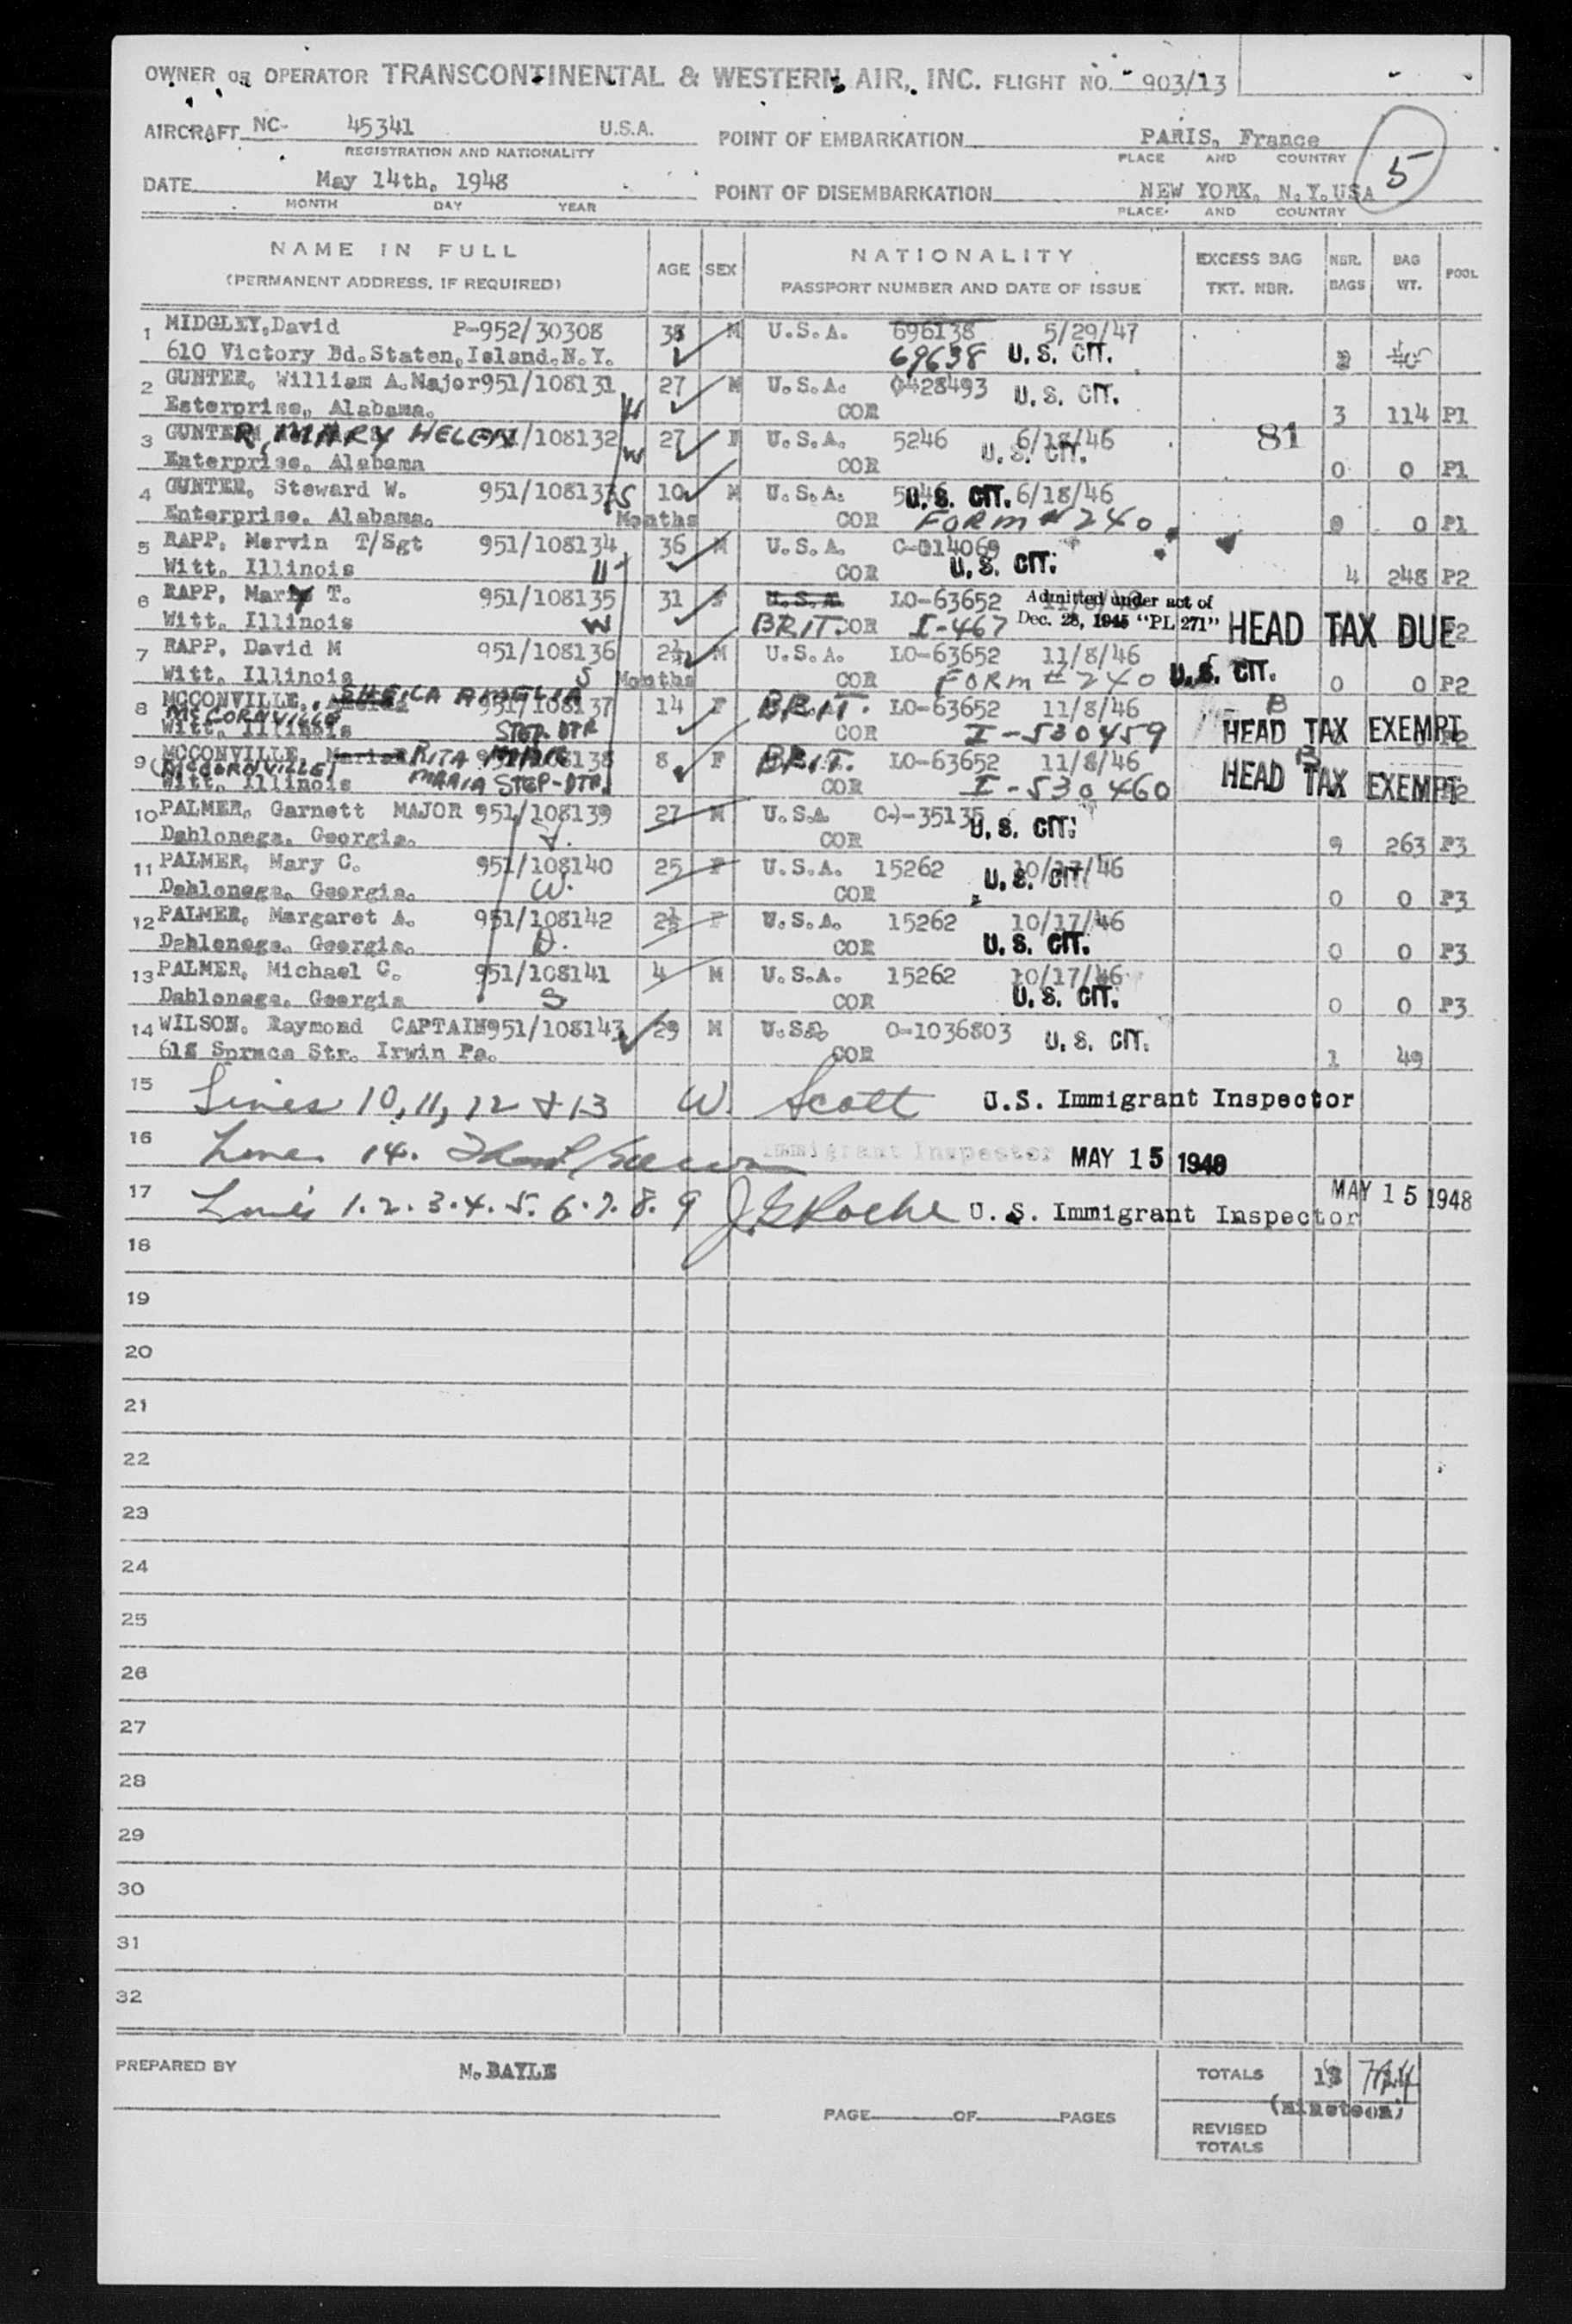 OWNER OR OPERATOR TRANSCONTINENTAL & WESTERN AIR, INC. FLIGHT NO. 903/13
AIRCRAFT NC- 45341 U.S.A. POINT OF EMBARKATION PARIS, France
REGISTRATION AND NATIONALITY PLACE AND COUNTRY
5
DATE May 14th, 1948 POINT OF DISEMBARKATION NEW YORK, N.Y.USA
MONTH DAY YEAR PLACE AND COUNTRY
NAME IN FULL AGE SEX NATIONALITY EXCESS BAG NBR. BAG POOL
(PERMANENT ADDRESS, IF REQUIRED) PASSPORT NUMBER AND DATE OF ISSUE TKT. NBR. BAGS WT.
1 MIDGLEY,David P-952/30308 M U.S.A. 696138 5/29/47
610 Victory Bd.Staten,Island,N.Y. 69638 U.S. CIT.
2 GUNTER, William A.Major951/108131 27 M U.S.A. 0428493 U.S. CIT.
Esterprise, Alabama. H COR 3 114 P1
3 GUNTER, MARY HELEN /108132 27 F U.S.A. 5246 6/18/46 81
Enterprise, Alabama W COR U.S. CIT. 0 0 P1
4 GUNTER, Steward W. 951/108133 S 10 M U.S.A. U.S. CIT. 6/18/46
Enterprise, Alabama. Months COR FORM # 240 0 0 P1
5 RAPP, Mervin T/Sgt 951/108134 36 M U.S.A. C-014069
Witt, Illinois H COR U.S. CIT. 4 248 P2
6 RAPP, Mary T. 951/108135 31 F U.S.A. LO-63652 Admitted under act of
Witt, Illinois W BRIT. COR I-467 Dec. 28, 1945 "PL 271" HEAD TAX DUE
7 RAPP, David M 951/108136 2½ M U.S.A. LO-63652 11/8/46
Witt, Illinois S Months COR FORM # 240 U.S. CIT. 0 0 P2
8 MCCONVILLE, SHEILA AMELIA 951/108137 14 F BRIT. LO-63652 11/8/46 B
MCCORNVILLE STEP-DTR
Witt, Illinois COR I-530459 HEAD TAX EXEMPT
9 MCCONVILLE, RITA 8 F BRIT. LO-63652 11/8/46 B
(MCCORNVILLE) MARIA STEP-DTR.
Witt, Illinois COR I-530460 HEAD TAX EXEMPT
10 PALMER, Garnett MAJOR 951/108139 27 M U.S.A U.S. CIT.
Dahlonega, Georgia. COR 9 263 P3
11 PALMER, Mary C. 951/108140 25 F U.S.A. 15262 10/17/46
Dahlonega, Georgia. W. COR U.S. CIT. 0 0 P3
12 PALMER, Margaret A. 951/108142 2½ F U.S.A. 15262 10/17/46
Dahlonega, Georgia. D. COR U.S. CIT. 0 0 P3
13 PALMER, Michael C. 951/108141 4 M U.S.A. 15262 10/17/46
Dahlonega, Georgia S COR U.S. CIT. 0 0 P3
14 WILSON, Raymond CAPTAIN951/108143 29 M U.S.A. O-1036803 U.S. CIT.
618 Spruce Str. Irwin Pa. COR 1 49
15 Lines 10, 11, 12 & 13 W. Scott U.S. Immigrant Inspector
16 Lines 14. Immigrant Inspector MAY 15 1948
17 Lines 1.2.3.4.5.6.7.8.9 J G Roche U.S. Immigrant Inspector MAY 15 1948
18
19
20
21
22
23
24
25
26
27
28
29
30
31
32
PREPARED BY M. BAYLE TOTALS
(nineteen)
PAGE OF PAGES REVISED
TOTALS